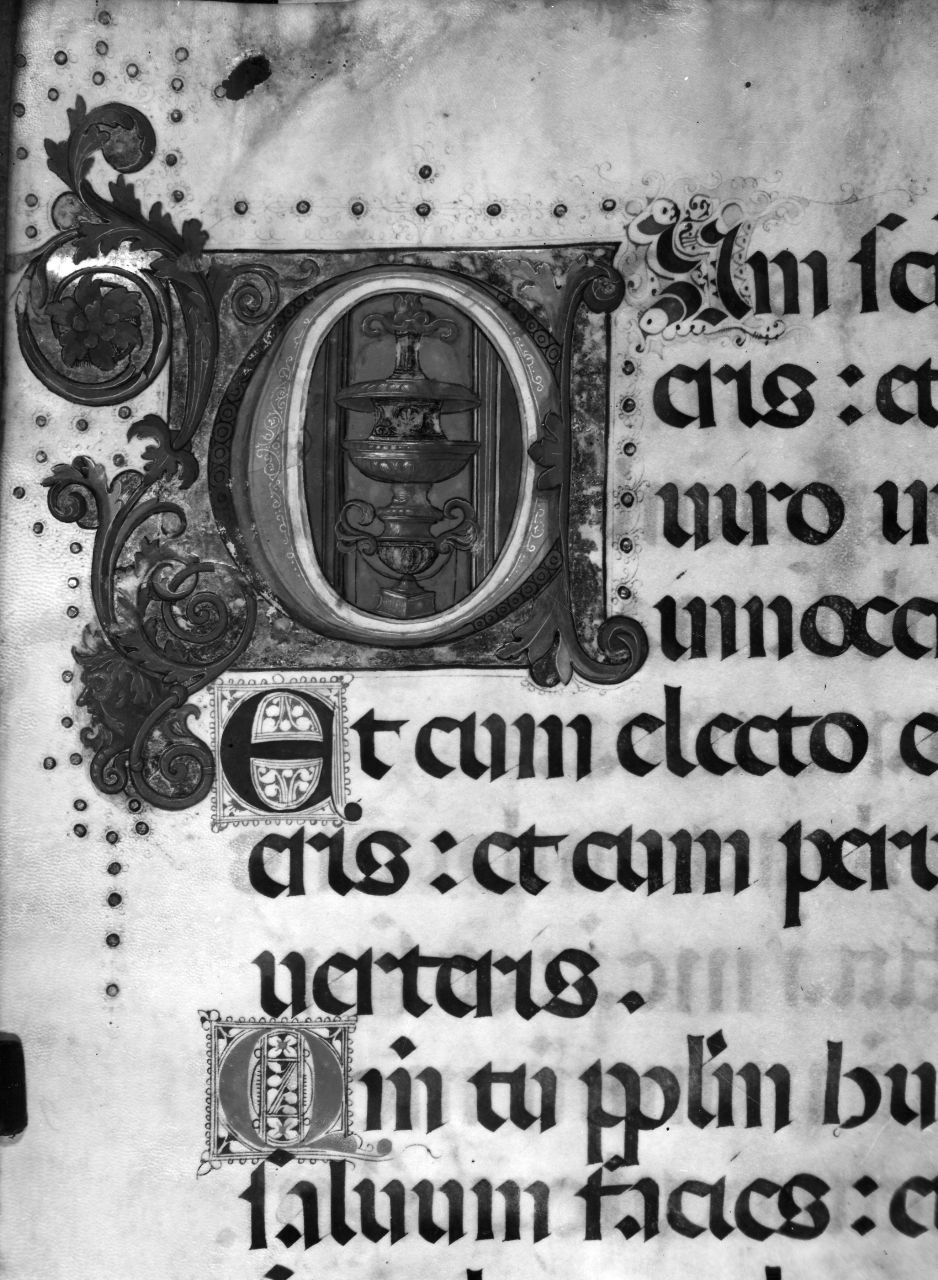 CUm sc
eris : et
uiro in
innoce
Et cum electo e
eris : et cum peru
uerteris .
Qm̄ tu pplm̄ hu
saluum facies : e